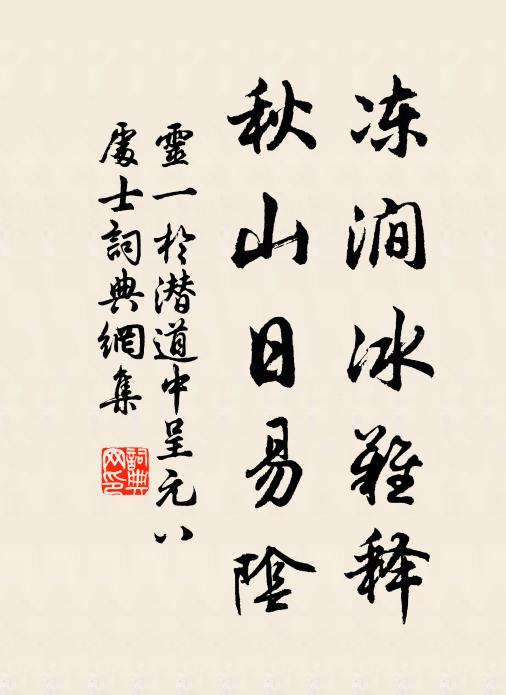 冻涧冰难释
秋山日易陰
靈一於潜道中呈元八
處士詞典網集
詞典
网印